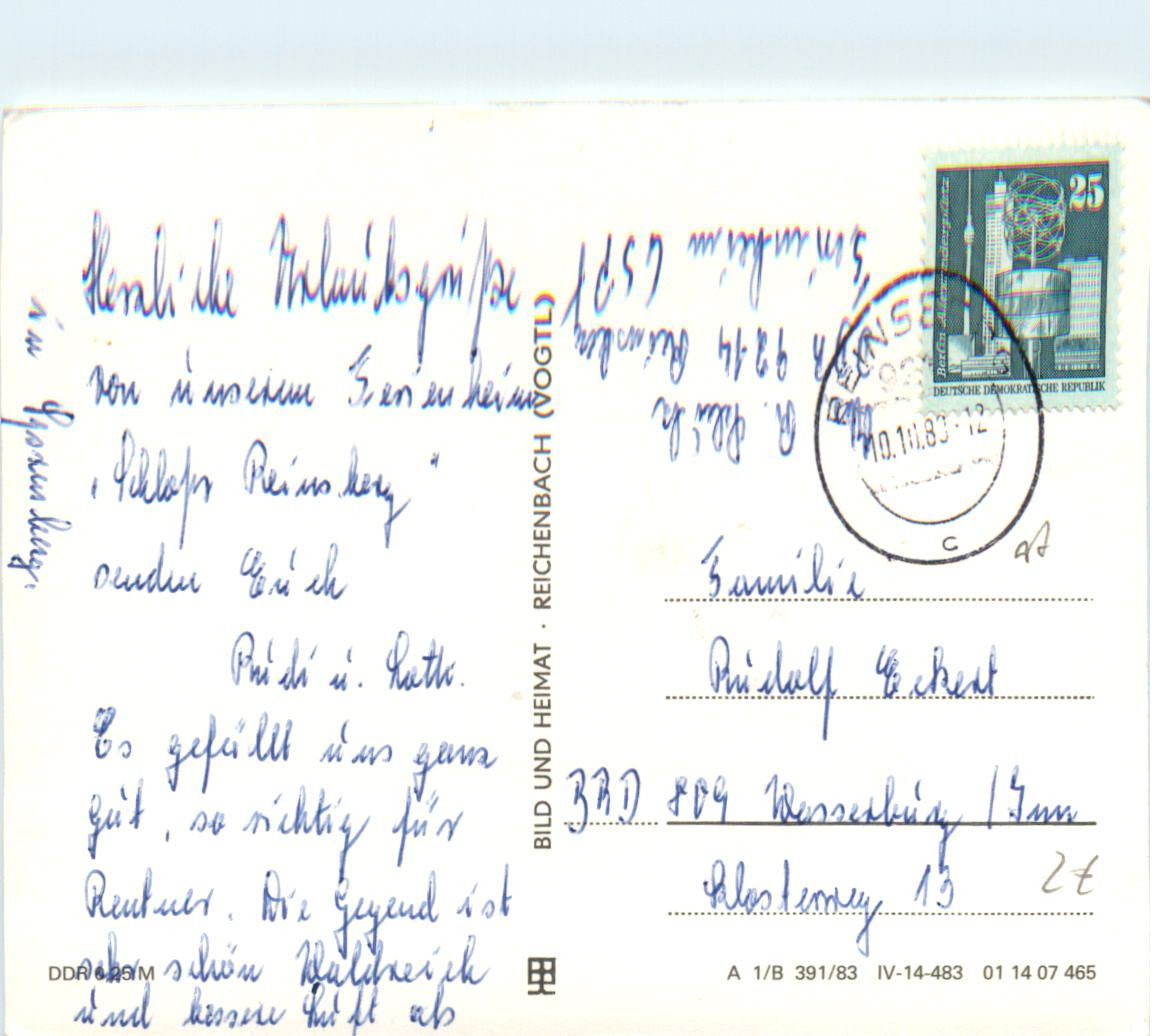 Herzliche Urlaubsgrüße
von unserem Ferienheim
"Schloß Reinsberg"
senden Euch
Rudi u. Loth.
Es gefällt uns ganz
gut, so richtig für
Rentner. Die Gegend ist
sehr schön Waldreich
und bessere Luft als
in
BILD UND HEIMAT · REICHENBACH (VOGTL)
A.
DDR 9214 Reinsberg
Ferienheim
25
Berlin Alexanderplatz
DEUTSCHE DEMOKRATISCHE REPUBLIK
REINSB
10.10.83-12
c
Familie
Rudolf Eckert
BRD 809 Wasserburg / Inn
Klosterweg 13
2€
DDR 0,25/M
A 1/B 391/83 IV-14-483 01 14 07 465